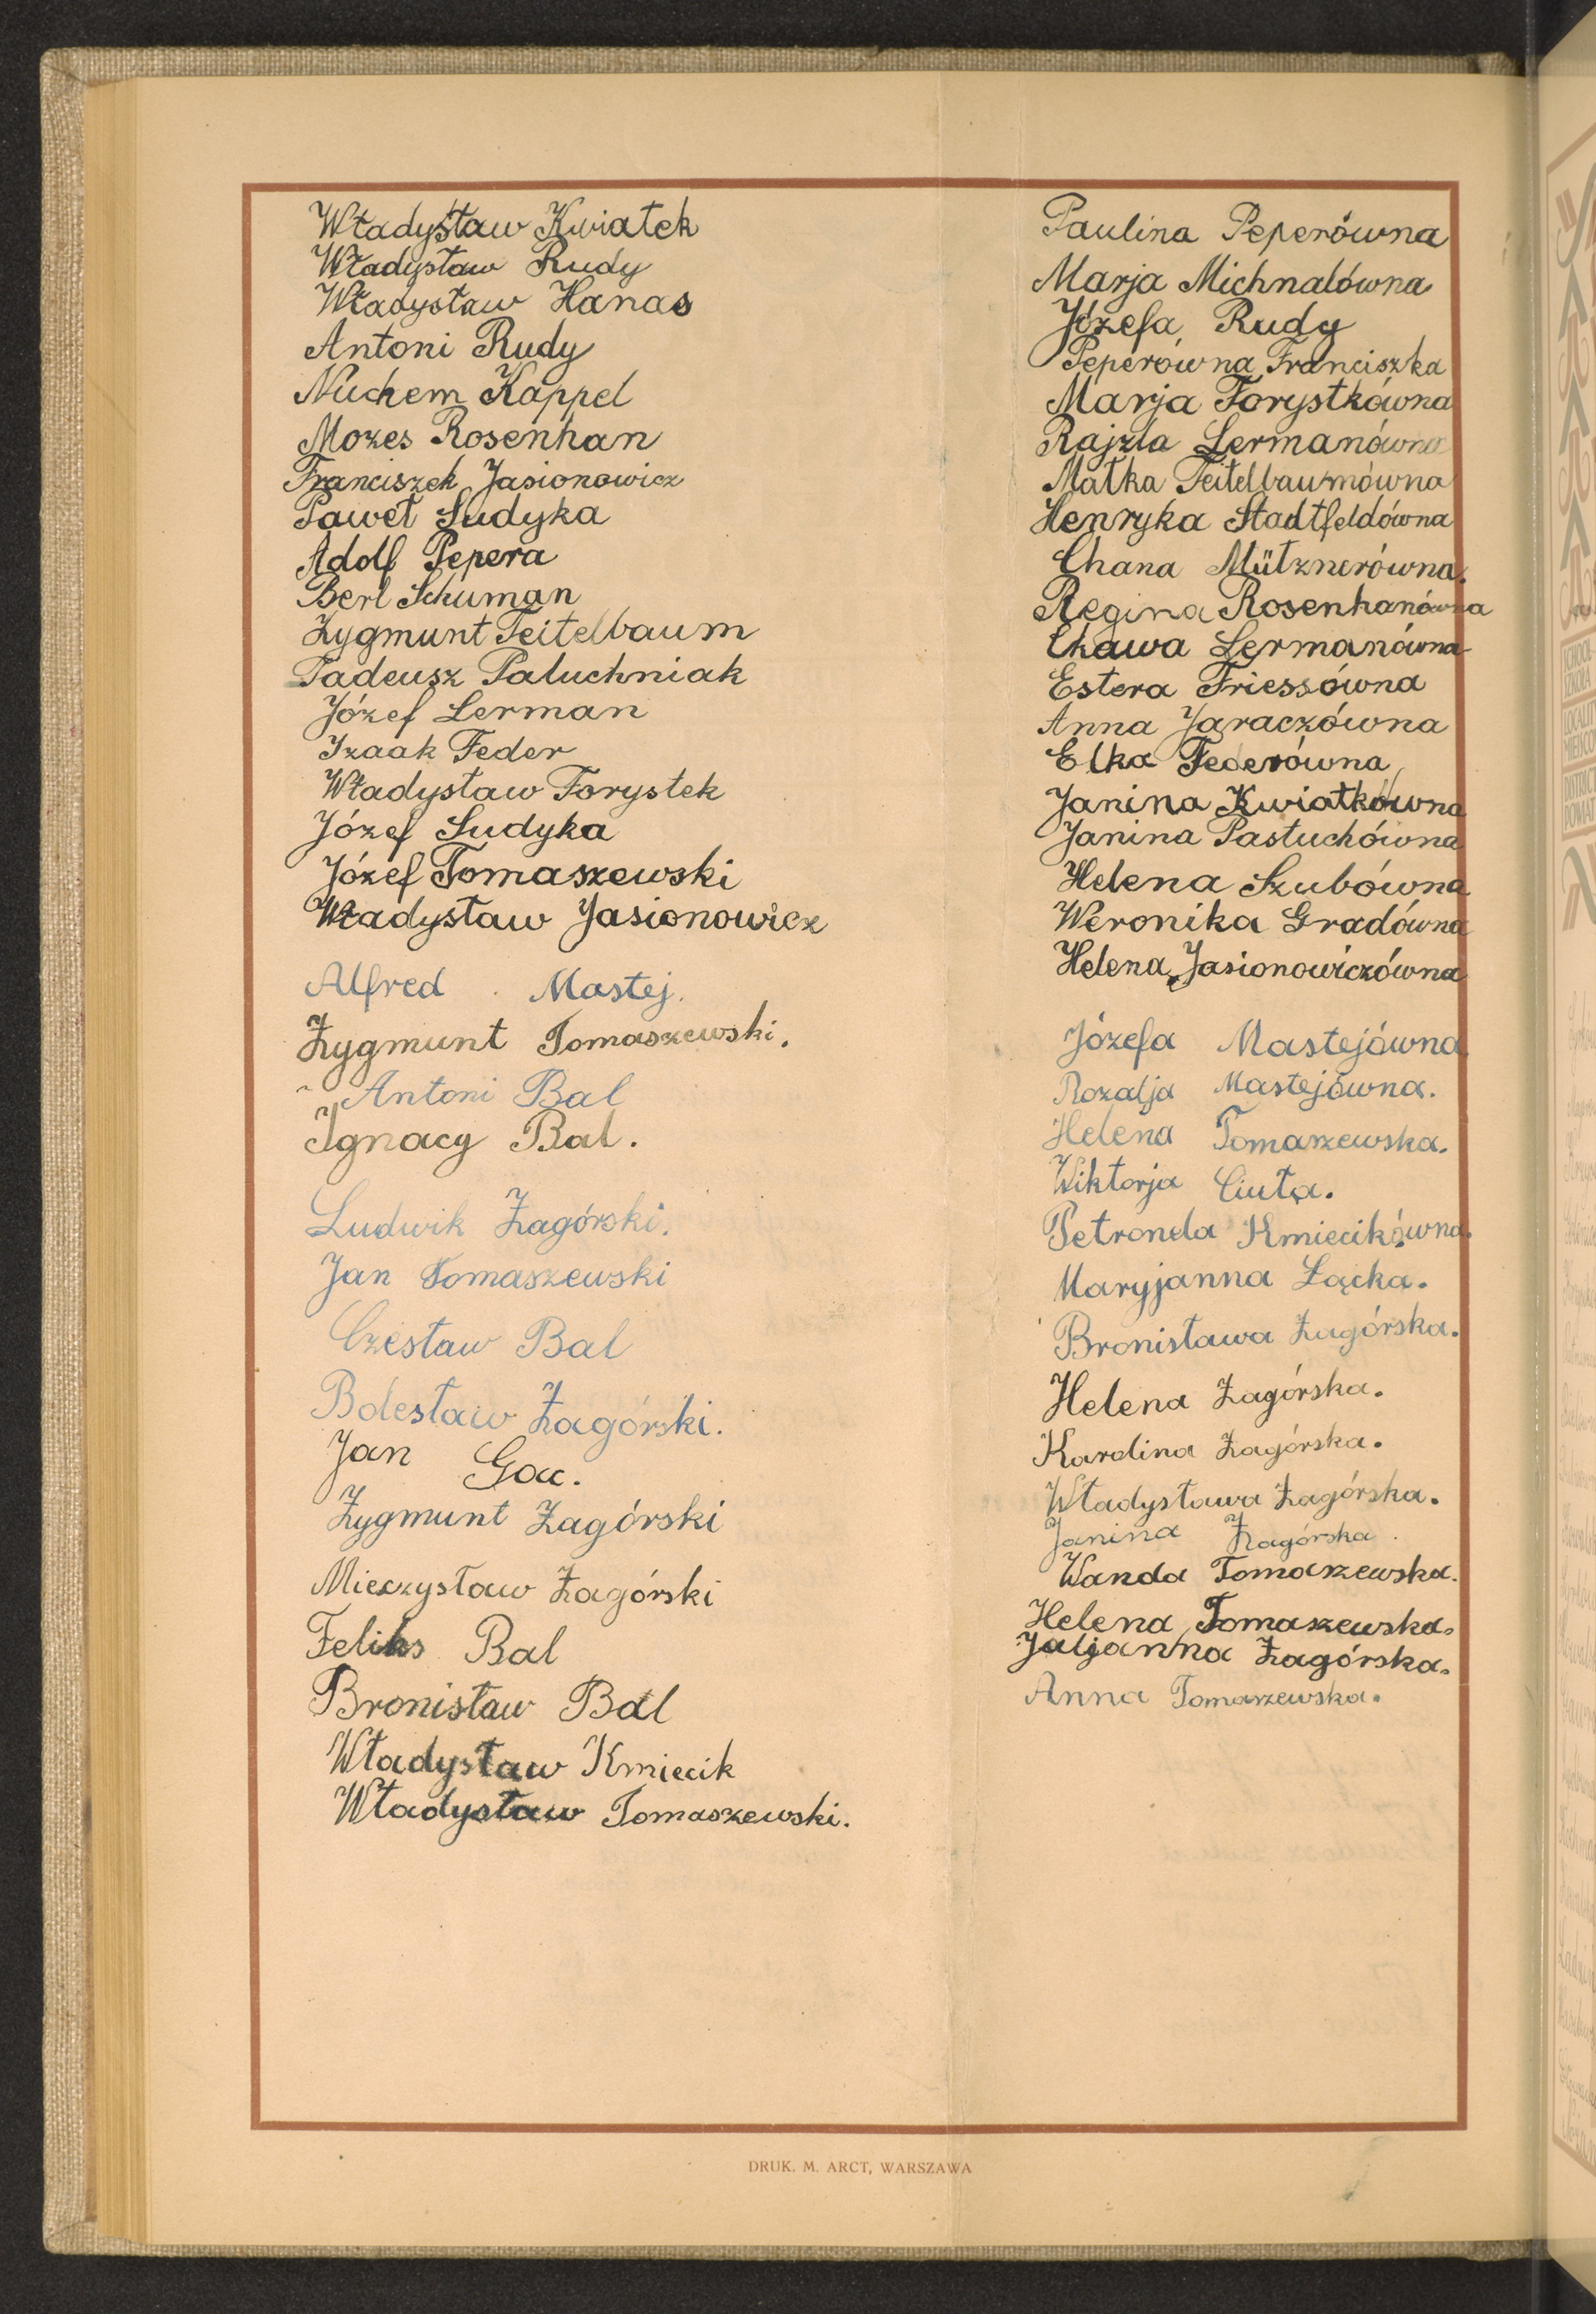 Władysław Kwiatek
Władysław Rudy
Władysław Hanas
Antoni Rudy
Nuchem Kappel
Mozes Rosenhan
Franciszek Jasionowicz
Paweł Ludyka
Adolf Pepera
Berl Schuman
Zygmunt Teitelbaum
Tadeusz Paluchniak
Józef Lerman
Izaak Feder
Władysław Forystek
Józef Ludyka
Józef Tomaszewski
Władysław Jasionowicz
Alfred Mastej.
Zygmunt Tomaszewski.
Antoni Bal
Ignacy Bal.
Ludwik Zagórski.
Jan Tomaszewski
Czesław Bal
Bolesław Zagórski.
Jan Gac.
Zygmunt Zagórski
Mieczysław Zagórski
Feliks Bal
Bronisław Bal
Władysław Kmiecik
Władysław Tomaszewski.
Paulina Peperówna
Marja Michnalówna
Józefa Rudy
Peperówna Franciszka
Marja Forystkówna
Rajzla Lermanówna
Matka Teitelbaumówna
Henryka Stadtfeldówna
Chana Mütznerówna.
Regina Rosenhanówna
Chawa Lermanówna
Estera Friessówna
Anna Jaraczówna
Elka Federówna
Janina Kwiatkówna
Janina Pastuchówna
Helena Szubówna
Weronika Gradówna
Helena Jasionowiczówna
Józefa Mastejówna
Rozalja Mastejówna.
Helena Tomaszewska.
Wiktorja Ciuta.
Petronela Kmiecikówna.
Maryjanna Łącka.
Bronisława Zagórska.
Helena Zagórska.
Karolina Zagórska.
Władysława Zagórska.
Janina Zagórska.
Wanda Tomaszewska.
Helena Tomaszewska.
Juljanna Zagórska.
Anna Tomaszewska.
DRUK. M. ARCT, WARSZAWA